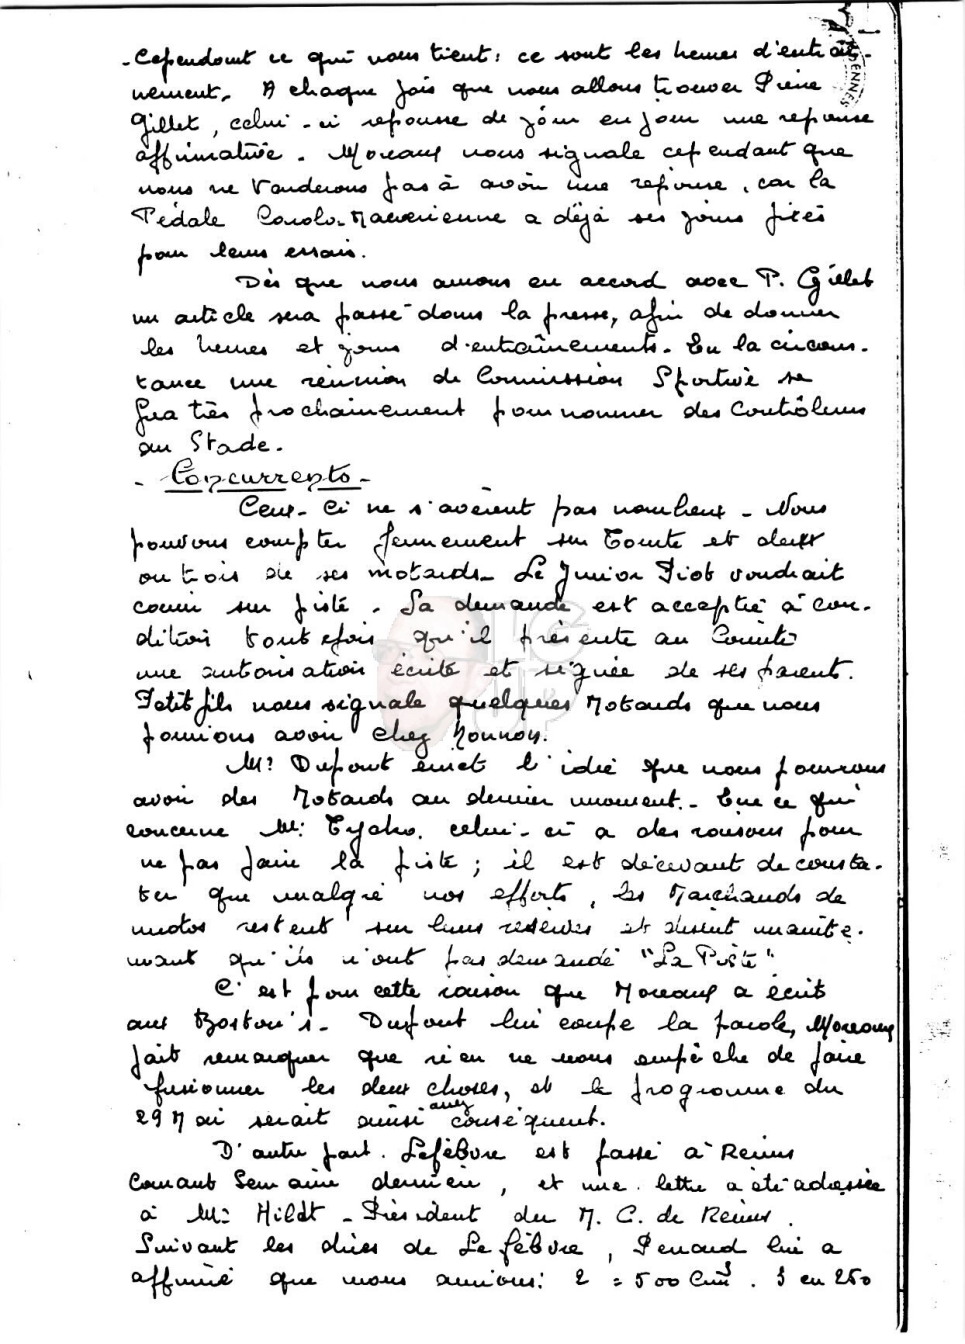 - Cependant ce qui nous tient: ce sont les heures d'entraî-
nement. A chaque fois que nous allons trouver Pierre
Gillet, celui-ci repousse de jour en jour une réponse
affirmative. Moreaux nous signale cependant que
nous ne tarderons pas à avoir une réponse, car la
Pédale Carolo-Macérienne a déjà ses jours fixés
pour leurs essais.
Dès que nous aurons eu accord avec P. Gillet
un article sera passé dans la presse, afin de donner
les heures et jours d'entraînements. En la circons-
tance une réunion de Commission Sportive se
fera très prochainement pour nommer des Contrôleurs
au Stade.
- Concurrents -
Ceux-ci ne s'avèrent pas nombreux - Nous
pouvons compter fermement sur Comte et deux
ou trois de ses motards. Le Junior Piot voudrait
courir sur piste. Sa demande est acceptée à con-
dition toutefois qu'il présente au Comité
une autorisation écrite et signée de ses parent.
Petitfils nous signale quelques Motards que nous
pourrions avoir chez
Mr Dupont émet l'idée que nous pourrons
avoir des Motards au dernier moment. - En ce qui
concerne Mr: celui-ci a des raisons pour
ne pas faire la piste; il est décevant de consta-
ter que malgré nos efforts, les Marchands de
motos restent sur leurs réserves et disent
qu'ils n'ont pas demandé "La Piste"
C'est pour cette raison que Moreaux a écrit
aux Boston's - Dupont lui coupe la parole, Moreaux
fait remarquer que rien ne nous empêche de faire
fusionner les deux choses, et le programme du
29 Mai serait ainsi assez conséquent.
D'autre part. Lefèbvre est passé à Reims
Courant Semaine dernière, et une lettre a été adressée
à Mr Hildt - Président du M. C. de Reims.
Suivant les dires de Lefèbvre, Penard lui a
affirmé que nous aurions: 2 = 500 Cm3. 3 en 250
LC UP